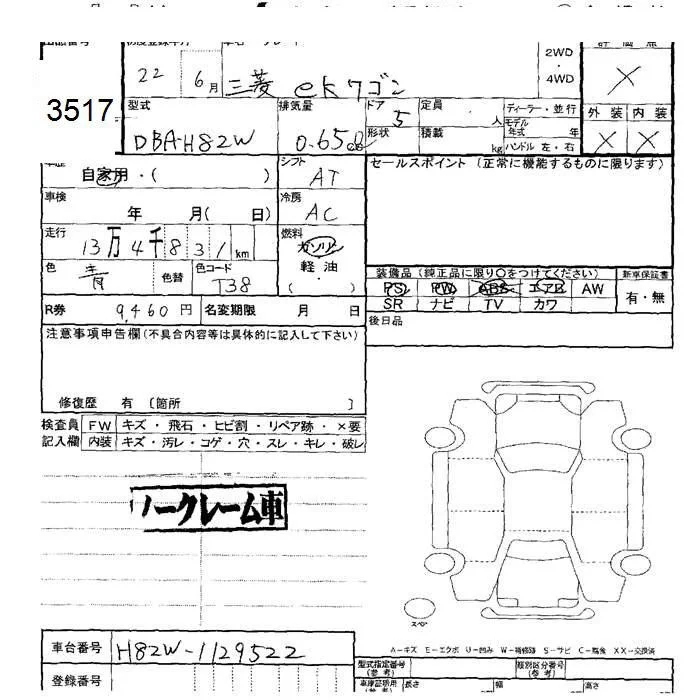 初度登録年月 車名・グレード 評価点
22 6月 三菱 ekワゴン 2WD・4WD ×
3517
型式 排気量 ドア 5 定員 人 ディーラー・並行 外装 内装
DBA-H82W 0.65 形状 積載 kg モデル年式 年 ハンドル 左・右 × ×
車歴 自家用・( ) シフト AT セールスポイント (正常に機能するものに限ります)
車検 年 月( 日) 冷房 AC
走行 13万4千831km 燃料 ガソリン・軽油・( )
色 青 色替 色コード T38
装備品(純正品に限り○をつけてください) 新車保証書
PS PW ABS エアB AW 有・無
SR ナビ TV カワ
R券 9,460円 名変期限 月 日 後日品
注意事項申告欄(不具合内容等は具体的に記入して下さい)
修復歴 有 〔箇所 〕
検査員 FW キズ・飛石・ヒビ割・リペア跡・×要
記入欄 内装 キズ・汚レ・コゲ・穴・スレ・キレ・破レ
ノークレーム車
スペア
A-キズ E-エクボ U-凹み W-補修跡 S-サビ C-腐食 XX-交換済
車台番号 H82W-1129522
型式指定番号(参考) 類別区分番号(参考)
登録番号
長さ 幅 高さ